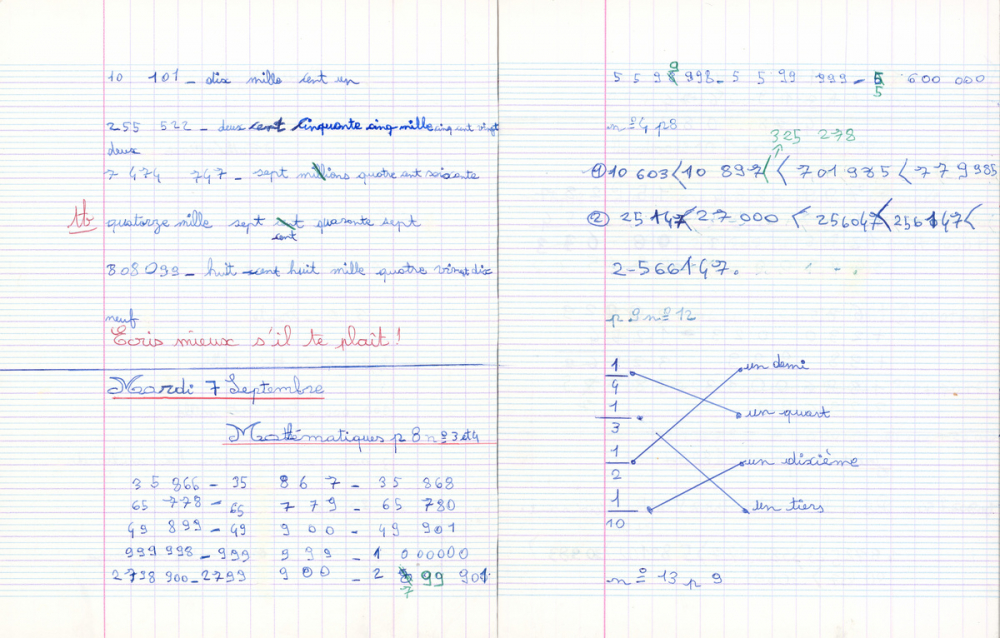 10 101 _ dix mille cent un
255 522 _ deux cent cinquante cinq mille cinq cent vingt
deux
7 474 747 _ sept millions quatre cent soixante
tb quatorze mille sept cent quarante sept
808 099 _ huit cent huit mille quatre vingt dix
neuf
Ecris mieux s'il te plaît !
Mardi 7 Septembre
Mathématiques p 8 nº 3 et 4
35 866 _ 35 867 _ 35 868
65 778 _ 65 779 _ 65 780
49 899 _ 49 900 _ 49 901
999 998 _ 999 999 _ 1 000000
2 798 900 _ 2799 900 _ 2 799 901
5 599 998 _ 5 599 999 _ 5 600 000
nº 4 p8
325 278
① 10 603 < 10 897 < < 701 985 < 779 985
② 25 147 < 27 000 < 256047 < 256147 <
2 _ 566147.
p 9 nº 12
1/4 un demi
1/3 un quart
1/2 un dixième
1/10 un tiers
nº 13 p 9